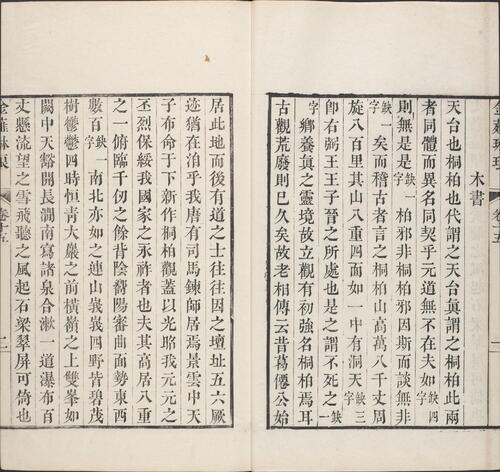 木書
天台也桐柏也代謂之天台真謂之桐柏此兩
者同體而異名同契乎元道無不在夫如缺四字
則無是是缺一字柏邪非桐柏邪因斯而談無非
缺一字矣而稽古者言之桐柏山高萬八千丈周
旋八百里其山八重四面如一中有洞天缺三字
卽右弼王王子晉之所處也是之謂不死之缺一
字鄉養眞之靈境故立觀有初強名桐柏焉耳
古觀荒廢則已久矣故老相傳云昔葛僊公始
居此地而後有道之士往往因之壇址五六厥
迹猶在洎乎我唐有司馬鍊師居焉景雲中天
子布命于下新作桐柏觀蓋以光昭我元元之
丕烈保綏我國家之永祚者也夫其高居八重
之一俯臨千仞之餘背陰鬱陽審曲面勢東西
數百缺一字南北亦如之連山峩峩四野皆碧茂
樹鬱鬱四時恒青大巖之前橫嶺之上雙峯如
闕中天豁開長澗南寫諸泉合漱一道瀑布百
丈懸流望之雪飛聽之風起石梁翠屏可倚也
金薤琳琅
卷十五
二